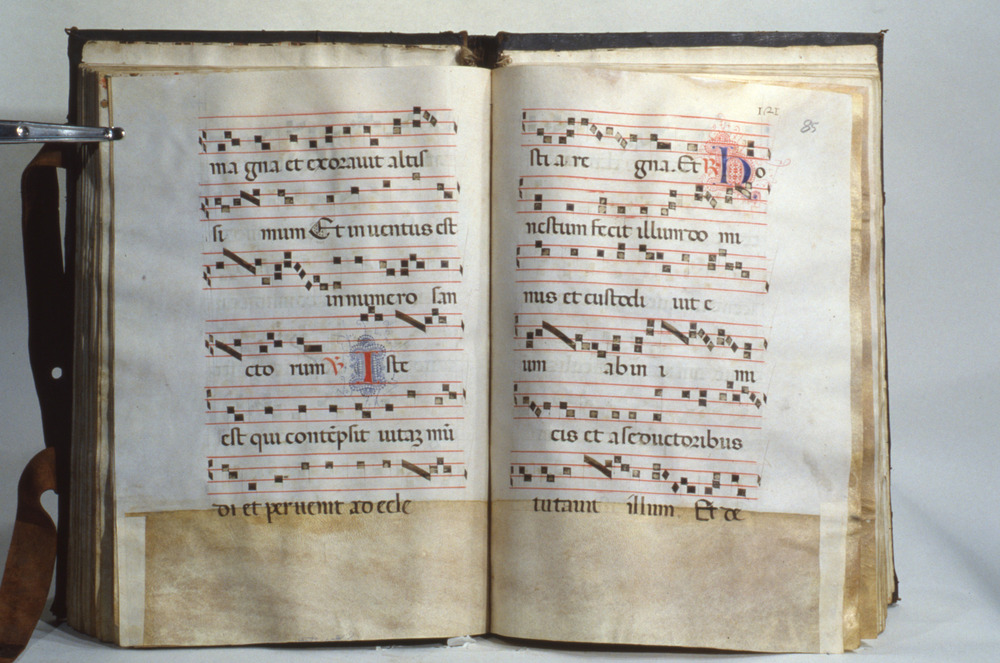 ma gna et exorauit altis
si mum Et in uentus est
in numero san
cto rum ℣ Iste
est qui contēpsit uitaʒ mū
di et peruenit ad ecle
1121
85
sti a re gna. Et ℟ ho
nestum fecit illum do mi
nus et custodi uit e
um ab in i mi
cis et a seductoribus
tutauit illum. Et de